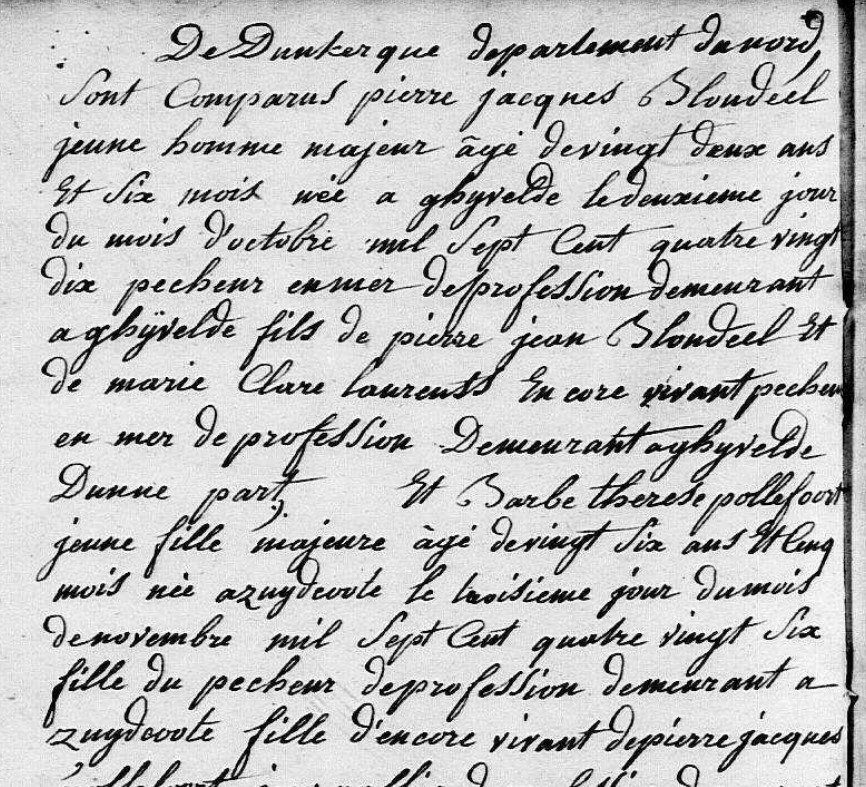 De Dunkerque departement du nord,
Sont Comparus pierre jacques Blondeel
jeune homme majeur âgé de vingt deux ans
Et Six mois née a ghyvelde le deuxieme jour
du mois d'octobre mil Sept Cent quatre vingt
dix pecheur en mer de profession demeurant
a ghÿvelde fils de pierre jean Blondeel Et
de marie Clare laurenss En core vivant pecheur
en mer de profession Demeurant a ghyvelde
Dunne part, Et Barbe therese pollefoort
jeune fille majeure âgé de vingt Six ans Et Cinq
mois née a zuydcoote le troisieme jour du mois
de novembre mil Sept Cent quatre vingt Six
fille du pecheur de profession demeurant a
zuydcoote fille d'encore vivant de pierre jacques